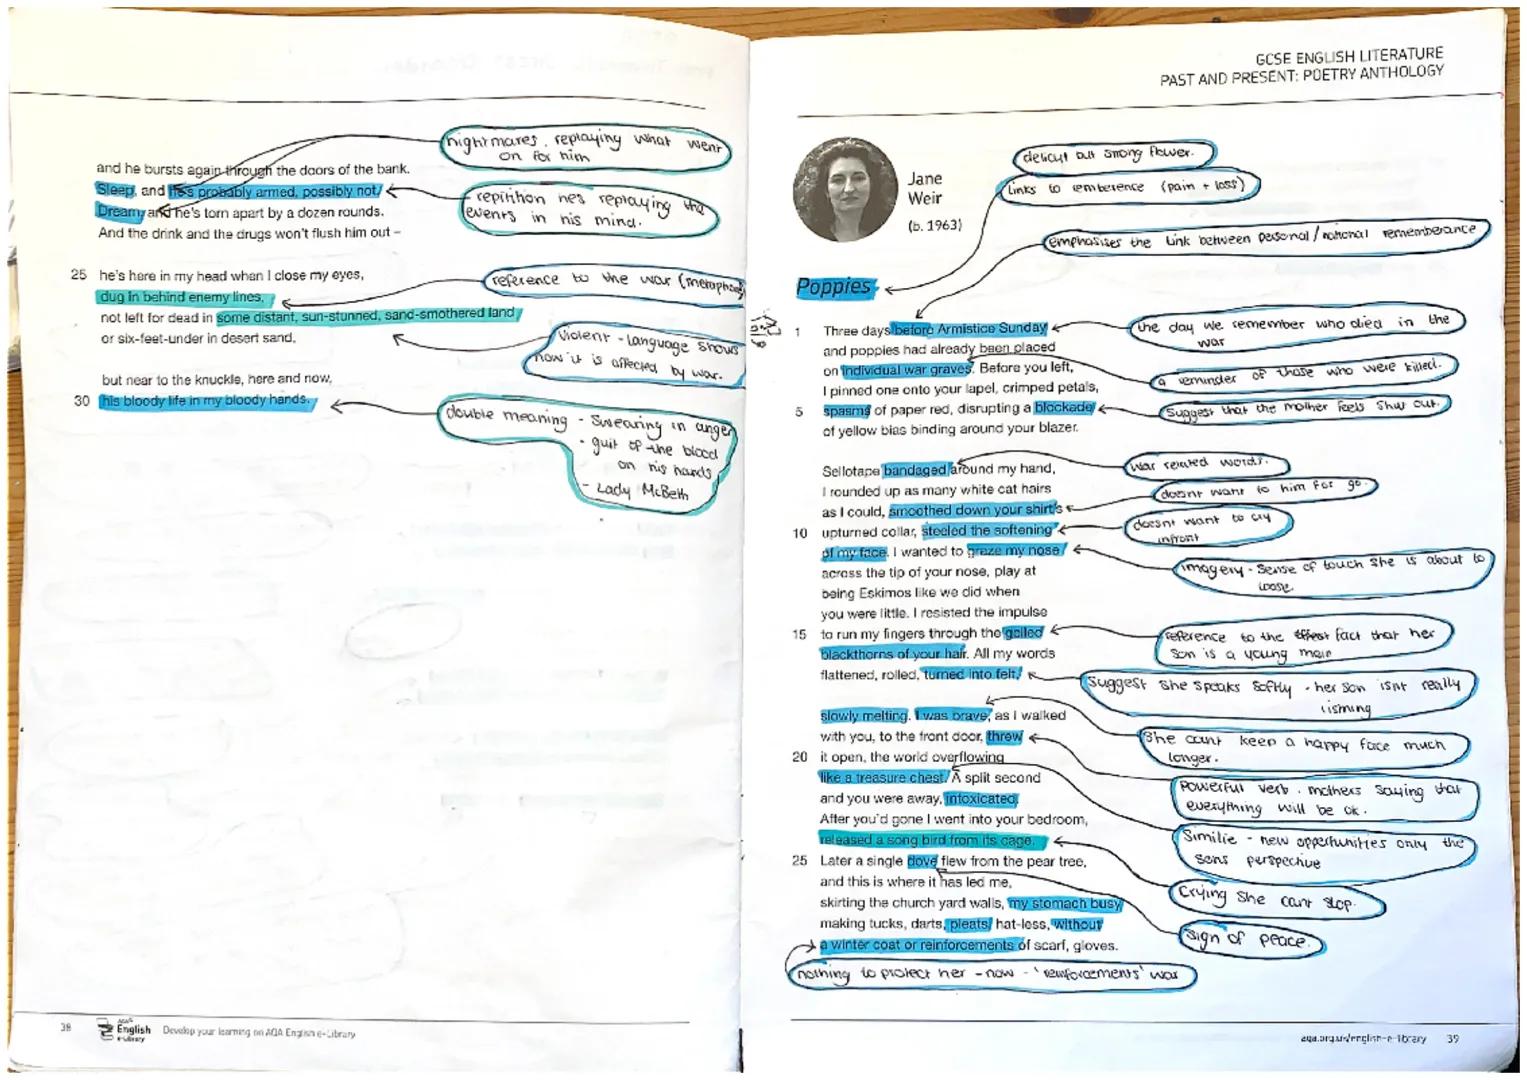 nightmares, replaying what went
on for him
and he bursts again through the doors of the bank.
Sleep, and he's probably armed, possibly not.
Dream, and he's torn apart by a dozen rounds.
And the drink and the drugs won't flush him out –
repitition hes replaying the
events in his mind.
25 he's here in my head when I close my eyes,
dug in behind enemy lines,
not left for dead in some distant, sun-stunned, sand-smothered land
or six-feet-under in desert sand,
reference to the war (metaphor)
Violent - language shows
how it is affected by war.
but near to the knuckle, here and now,
30 his bloody life in my bloody hands.
double meaning - Swearing in anger
- guilt of the blood
on his hands
- Lady McBeth
38
AQA
English
e-Library
Develop your learning on AQA English e-Library
GCSE ENGLISH LITERATURE
PAST AND PRESENT: POETRY ANTHOLOGY
Jane
Weir
(b. 1963)
delicut but strong flower.
links to remberence (pain + loss)
emphasises the link between personal/national rememberance
Poppies
1 Three days before Armistice Sunday
and poppies had already been placed
on individual war graves. Before you left,
I pinned one onto your lapel, crimped petals,
5 spasms of paper red, disrupting a blockade
of yellow bias binding around your blazer.
the day we remember who died in the
war
a reminder of those who were killed.
Suggest that the mother feels shut out.
Sellotape bandaged around my hand,
I rounded up as many white cat hairs
as I could, smoothed down your shirt's
10 upturned collar, steeled the softening
of my face. I wanted to graze my nose
across the tip of your nose, play at
being Eskimos like we did when
you were little. I resisted the impulse
15 to run my fingers through the gelled
blackthorns of your hair. All my words
flattened, rolled, turned into felt,
war related words.
doesnt want to him for go.
doesnt want to cry
infront
imagery - sense of touch she is about to
loose.
reference to the fact that her
son is a young man
Suggest she speaks softly - her son isnt really
lisming
slowly melting. I was brave, as I walked
with you, to the front door, threw
20 it open, the world overflowing
like a treasure chest. A split second
and you were away, intoxicated.
After you'd gone I went into your bedroom,
released a song bird from its cage.
25 Later a single dove flew from the pear tree,
and this is where it has led me,
skirting the church yard walls, my stomach busy
making tucks, darts, pleats, hat-less, without
a winter coat or reinforcements of scarf, gloves.
She cant keep a happy face much
longer.
Powerful verb. mothers saying that
everything will be ok.
Similie - new oppertunities only the
sons perspective
Crying she cant stop.
sign of peace.
nothing to protect her - now - 'reinforcements' war
aqa.org.uk/english-e-library 39